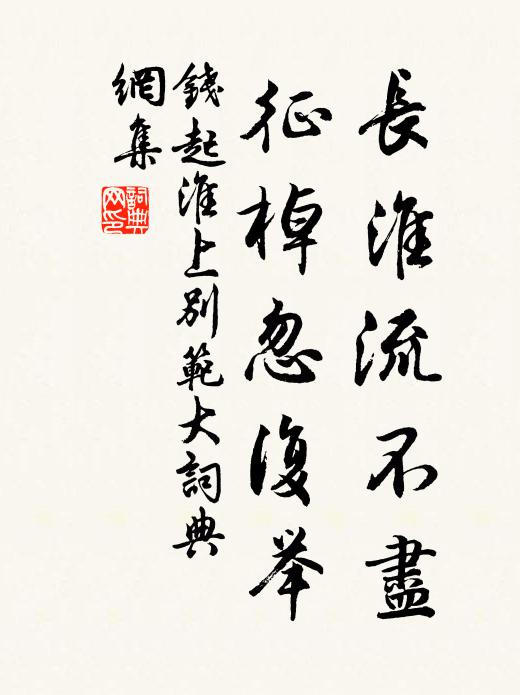 長淮流不盡
征棹忽復举
錢起淮上別範大詞典
網集
詞典
网印